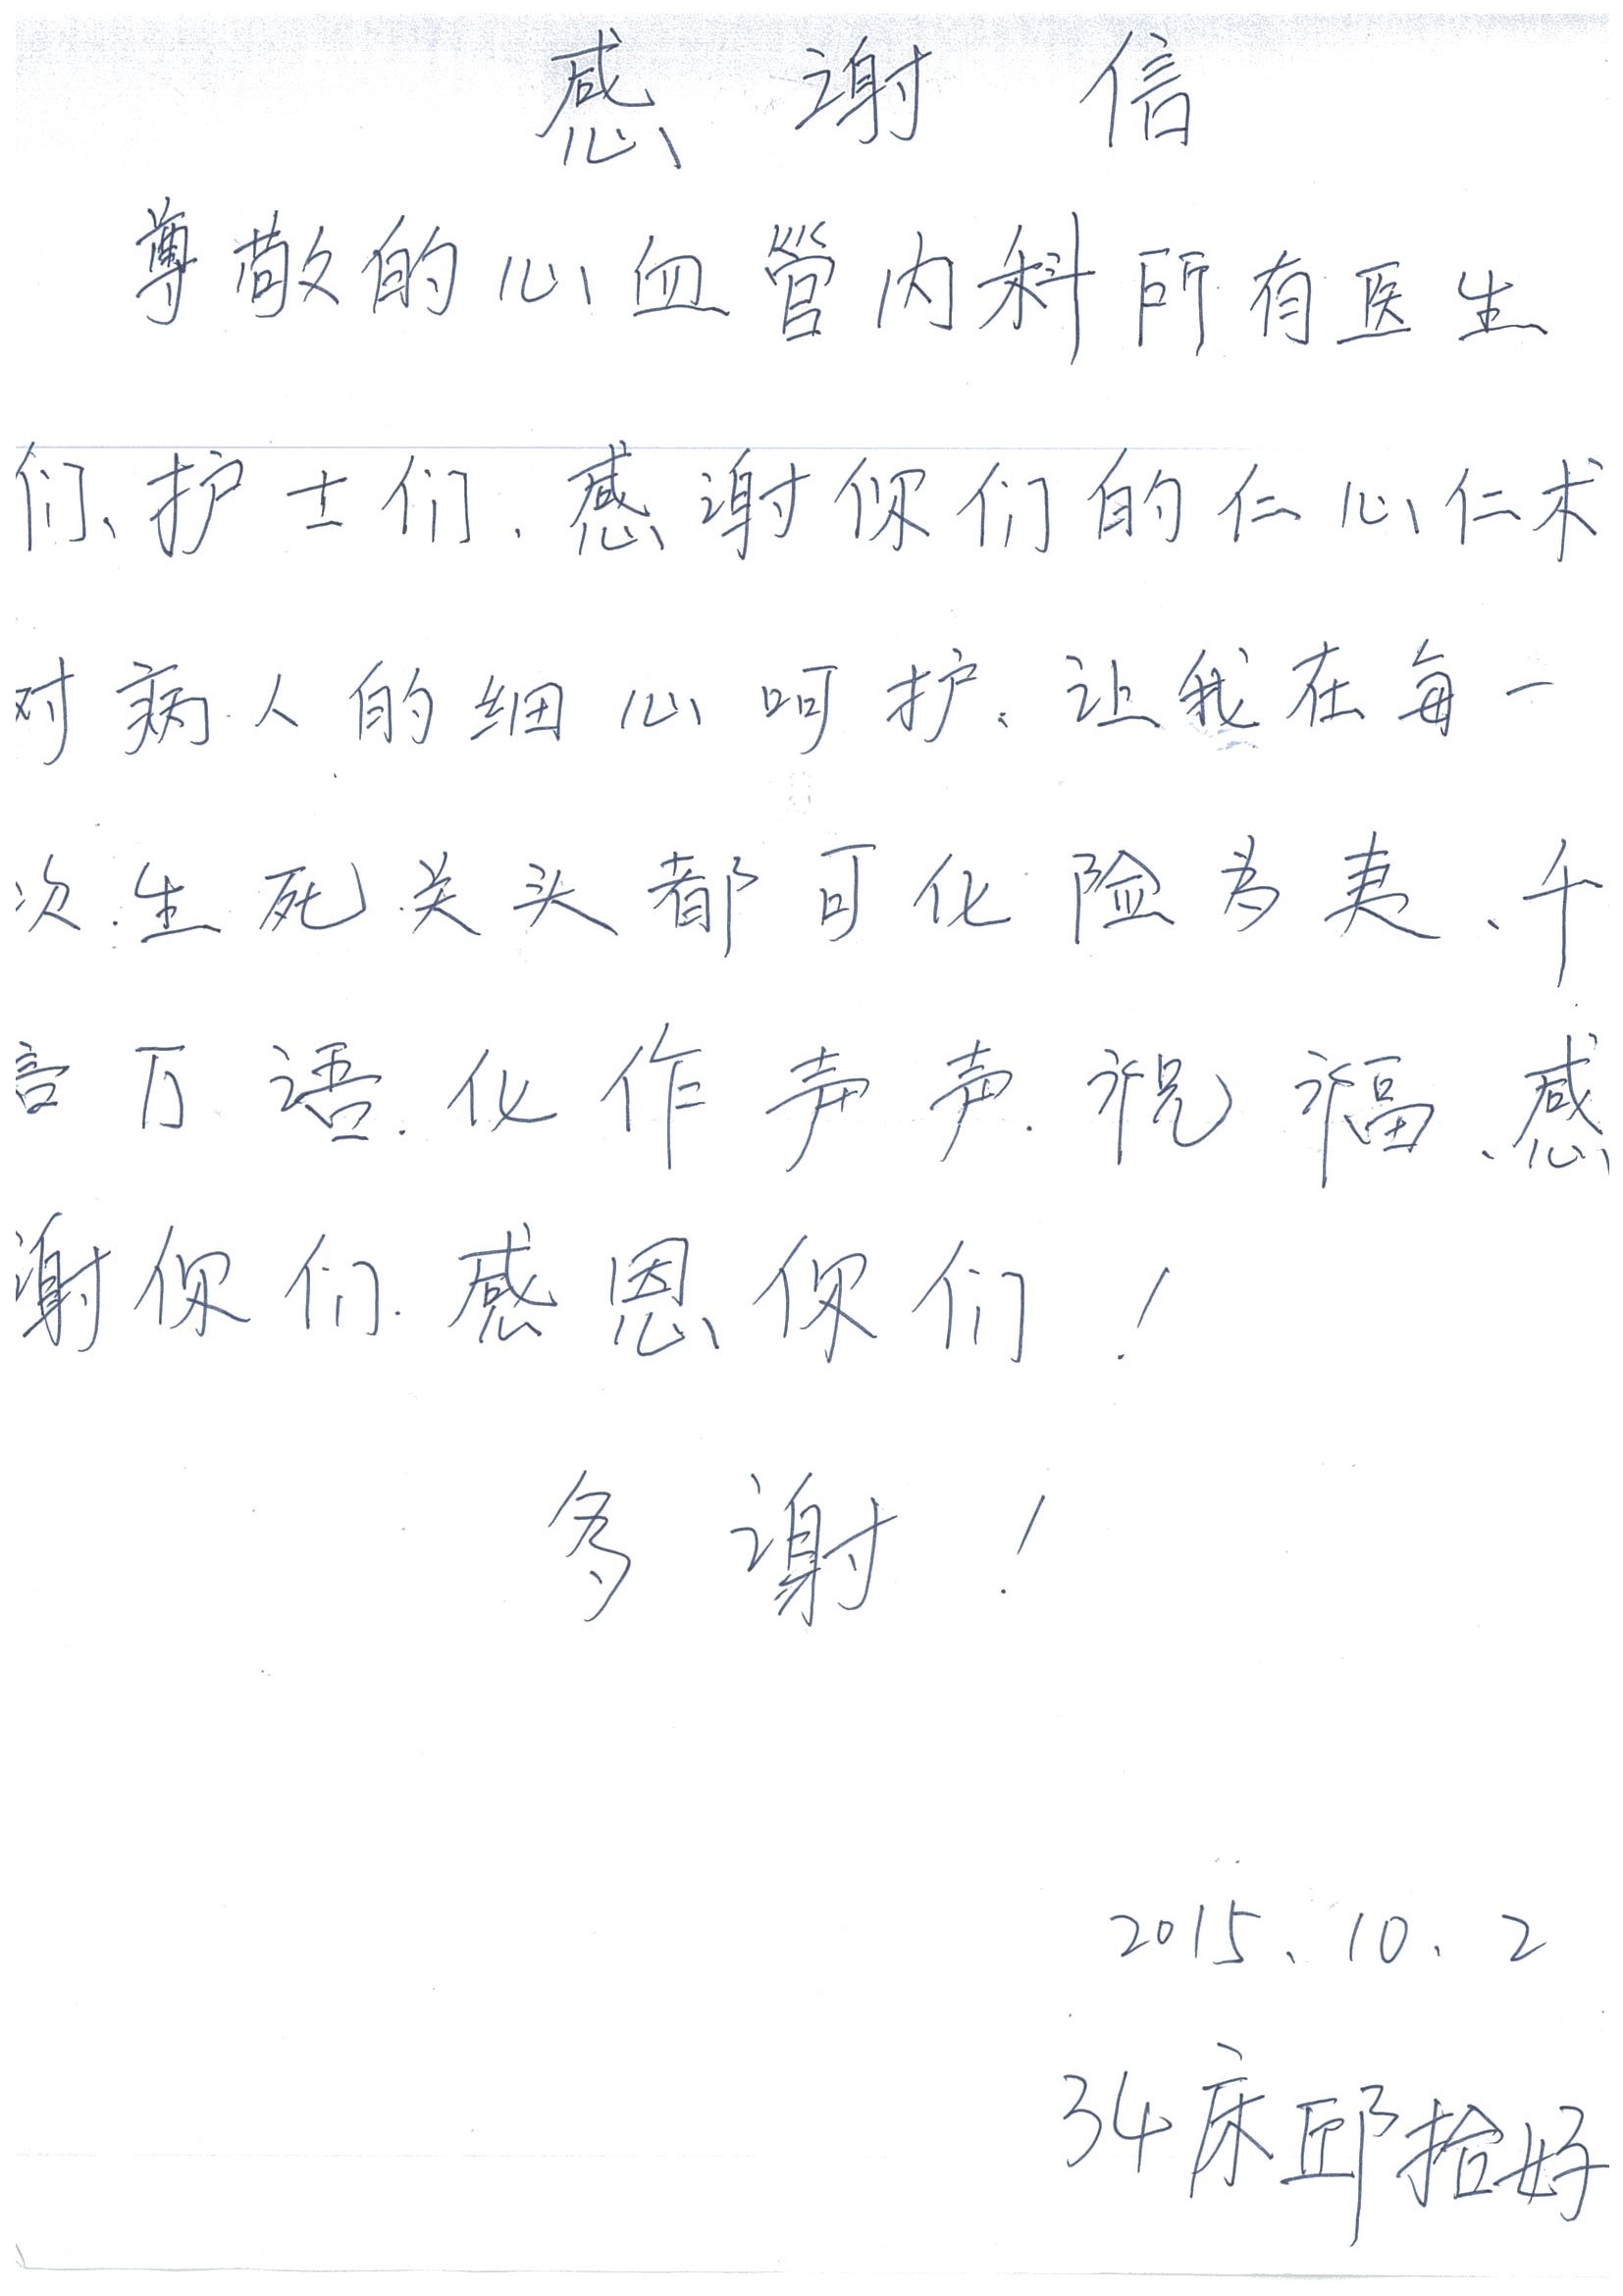 感谢信
尊敬的心血管内科所有医生
们、护士们.感谢你们的仁心仁术
对病人的细心呵护、让我在每一
次生死关头都可化险为夷、千
言万语.化作声声.祝福、感
谢你们.感恩你们!
多谢!
2015、10.2
34床邱拾好